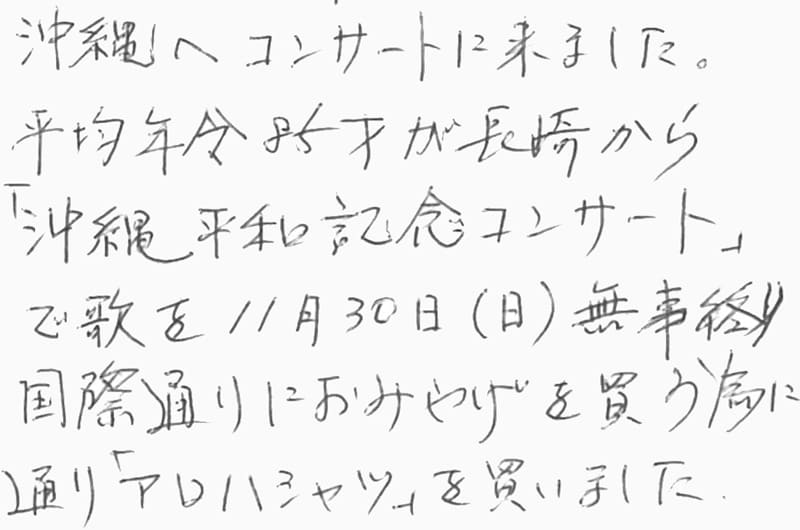 沖縄へコンサートに来ました。
平均年令85才が長崎から
「沖縄平和記念コンサート」
で歌を11月30日(日)無事終り
国際通りにおみやげを買う為に
通り「アロハシャツ」を買いました.